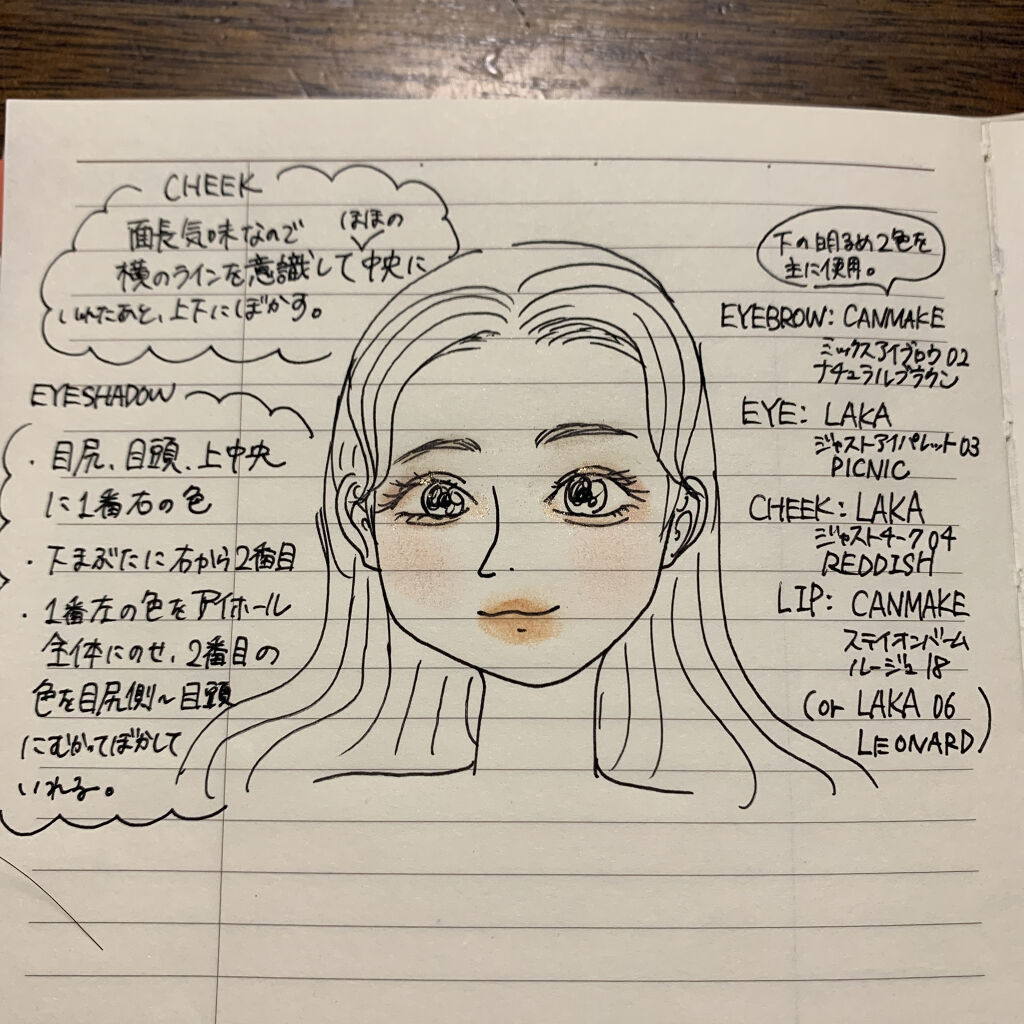 CHEEK
面長気味なので ほほの
横のラインを意識して中央に
いれたあと、上下にぼかす。
EYESHADOW
・目尻、目頭、上中央
に1番右の色
・下まぶたに右から2番目
・1番左の色をアイホール
全体にのせ、2番目の
色を目尻側〜目頭
にむかってぼかして
いれる。
下の明るめ2色を
主に使用。
EYEBROW: CANMAKE
ミックスアイブロウ02
ナチュラルブラウン
EYE: LAKA
ジャストアイパレット03
PICNIC
CHEEK: LAKA
ジャストチーク04
REDDISH
LIP: CANMAKE
ステイオンバーム
ルージュ18
(or LAKA 06
LEONARD)